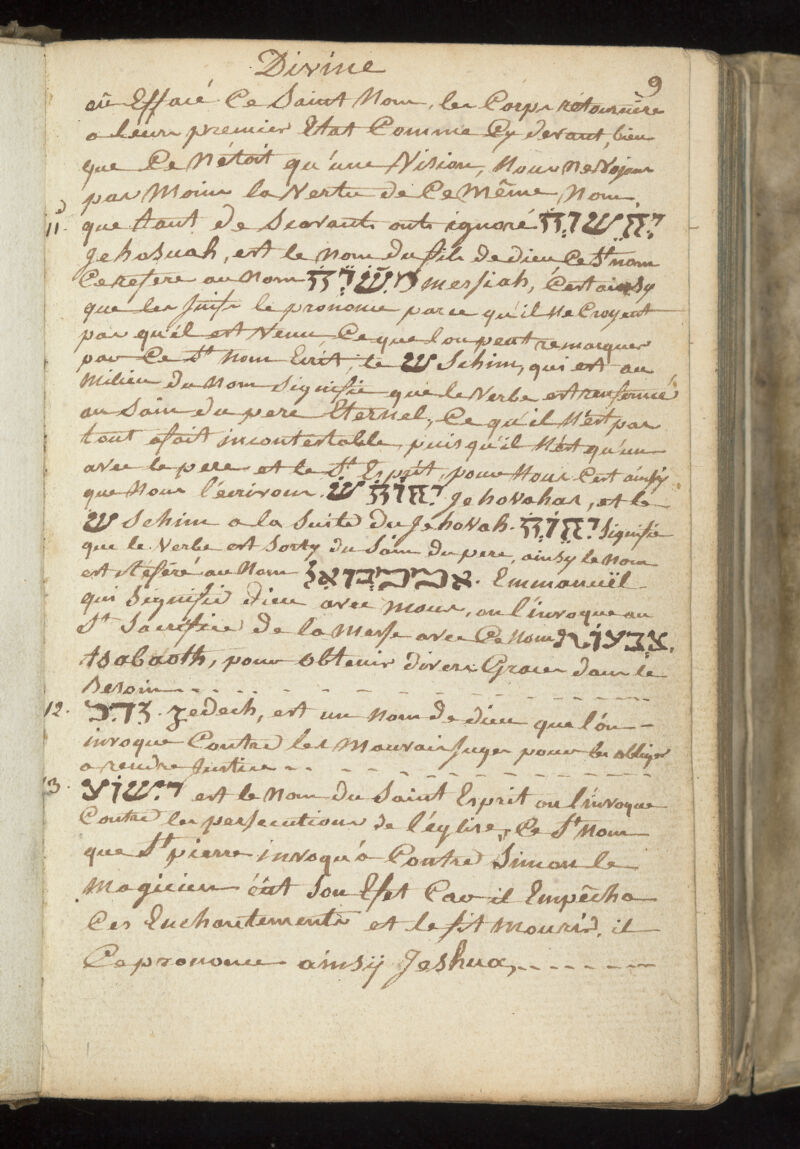 Divine
9
eû Effacé Ce Saint Nom, les Corps retournére
a leurs premier Etat Comme Cy devant, bien
que Ce N'étoit qu'une Vision, Nous ne Voyons
pas Moins la Vertu de Ce Même Nom,
11. que tant de Scavants onts ignoré יהשוה
Jehosuah, est le Nom du fils de dieu Ce St nom
Ce refere au Nom משיח messiah, C'est ainsy
que les Juifs le prononce parce qu'il Ne Croyent
pas qu'il est Venu Ce que l'on peut remarquer
par Ce St Nom Ecrit, le ש Schim, qui est au
Milieu du Nom Signifie que le Verbe est renfermé
au Sain du pere Eternel, Ce qu'il N'est pas
tout afait incontestable puisqu'il N'est qu'un
avec le pere et le St Esprit, pour Nous C'est ainsy
que Nous l'écrivons יהוהש Jehovahas, et le
ש Schim a la Suite du Jehovah יהוה Signifie
que le Verbe est Sorty du Sain du pere, ainsy le Nom
est Reféré au Nom Emmanuël
qui Signifie dieu avec Nous, on l'invoque au
St Sacrifice de la Messe avec Ce Nom צבאות,
tsabaoth, pour obtenir divers Graces dans le
Besoin
12. צדק. Zedech, est un Nom de dieu que l'on
invoque Contre les Mauvais Juges pour les obliger
a rendre Justice
13. ישוע est le Nom du Saint Esprit on l'invoque
Contre les persecutions de l'église, Ce St Nom
que St pierre invoqua Contre Simon le
Magicien eût Son Efet Car il Empêcha
Ces Enchantements et le fit Mourir, il
Ce prononce ainsÿ Jeshua,